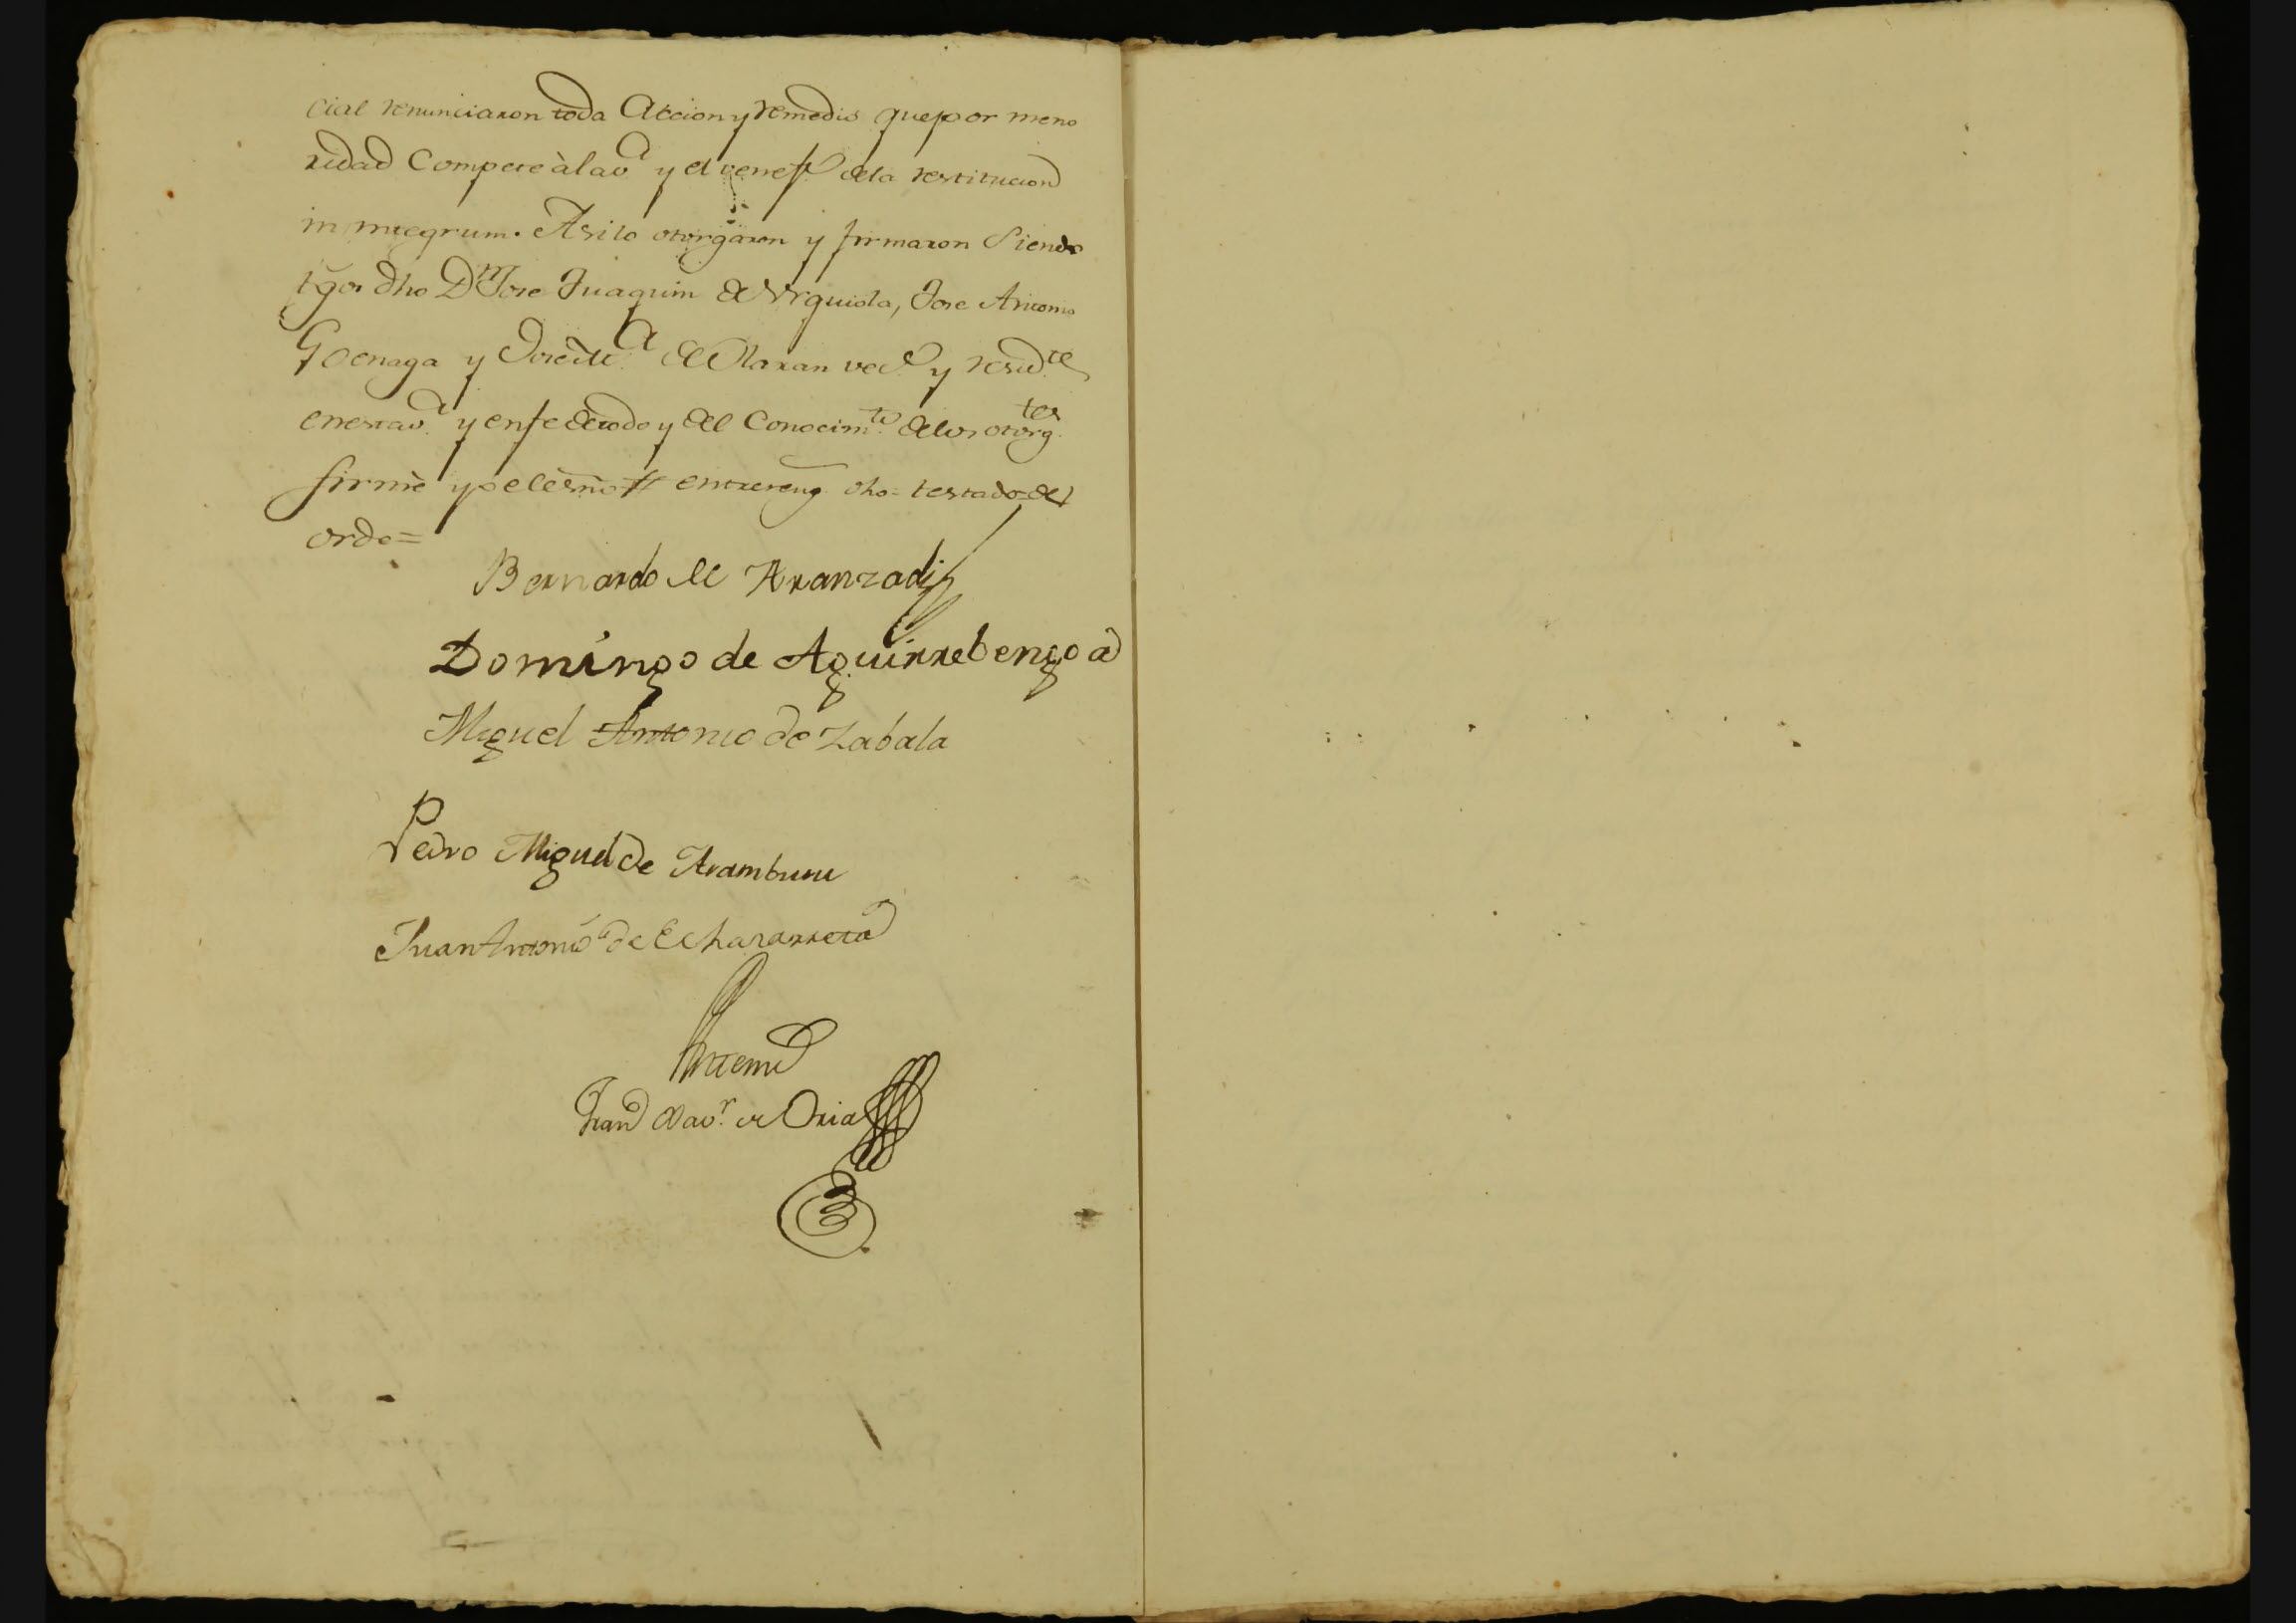 cial renunciaron toda Accion y remedio que por meno
ridad Compete à la v.ª y el venefº dela restitucion
in integrum. Asilo otorgaron y firmaron siendo
tgõs dho Dn Jose Juaquin de Vrquiola, Jose Antonio
Goenaga y Jose de Olaran vecº y residtes
enesta v.ª y enfe detodo y del Conocimto delos otorgtes
firmè yo el esño = entrereng. dho = testado = del
orde =
Bernardo de Aranzadi
Domingo de Aguirrebengoa
Miguel Antonio de Zabala
Pedro Miguel de Aramburu
Juan Antonio de Echanarreta
Antemi
Franco Xavr. de Oria